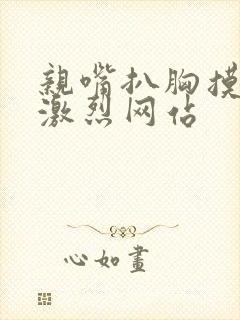 親嘴扒胸摸
激烈网佔
心如畫